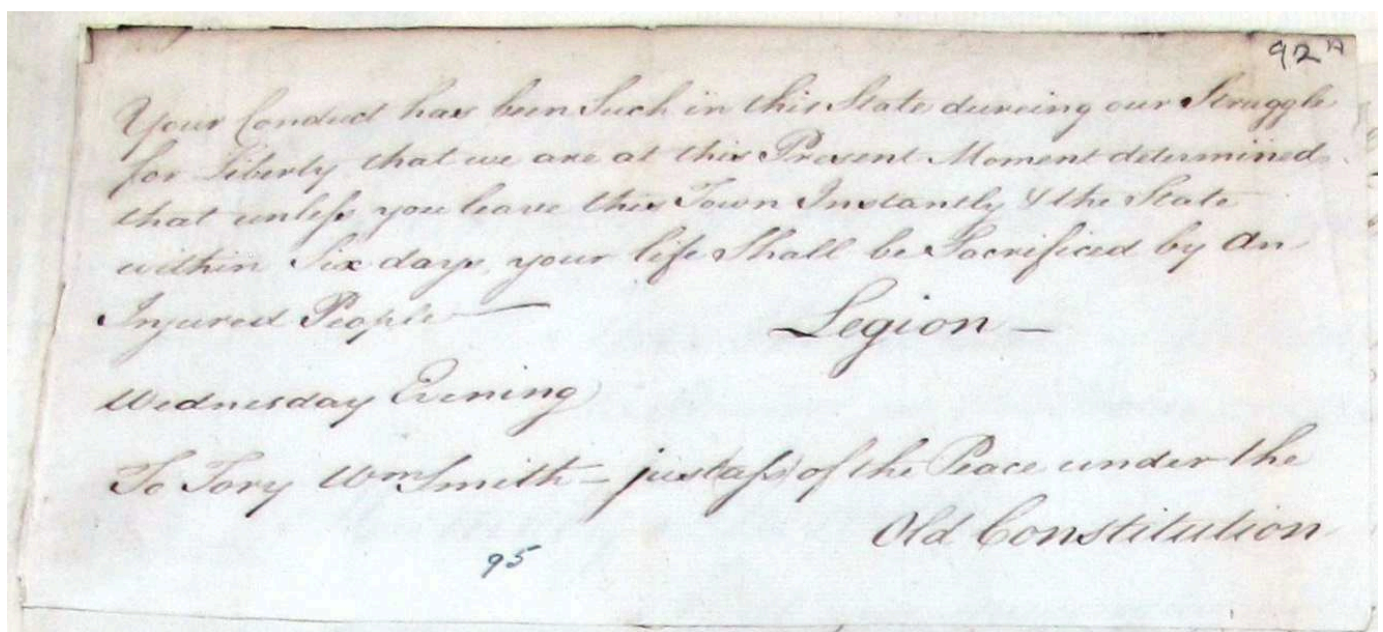 92 A
Your Conduct has been Such in this State dureing our Struggle
for Liberty, that we are at this Present Moment determined
that unless you leave this Town Instantly & the State
within Six days, your life Shall be Sacrificed by an
Injured People —
Legion —
Wednesday Evening
To Tory Wm Smith — just(ass) of the Peace under the
Old Constitution
95